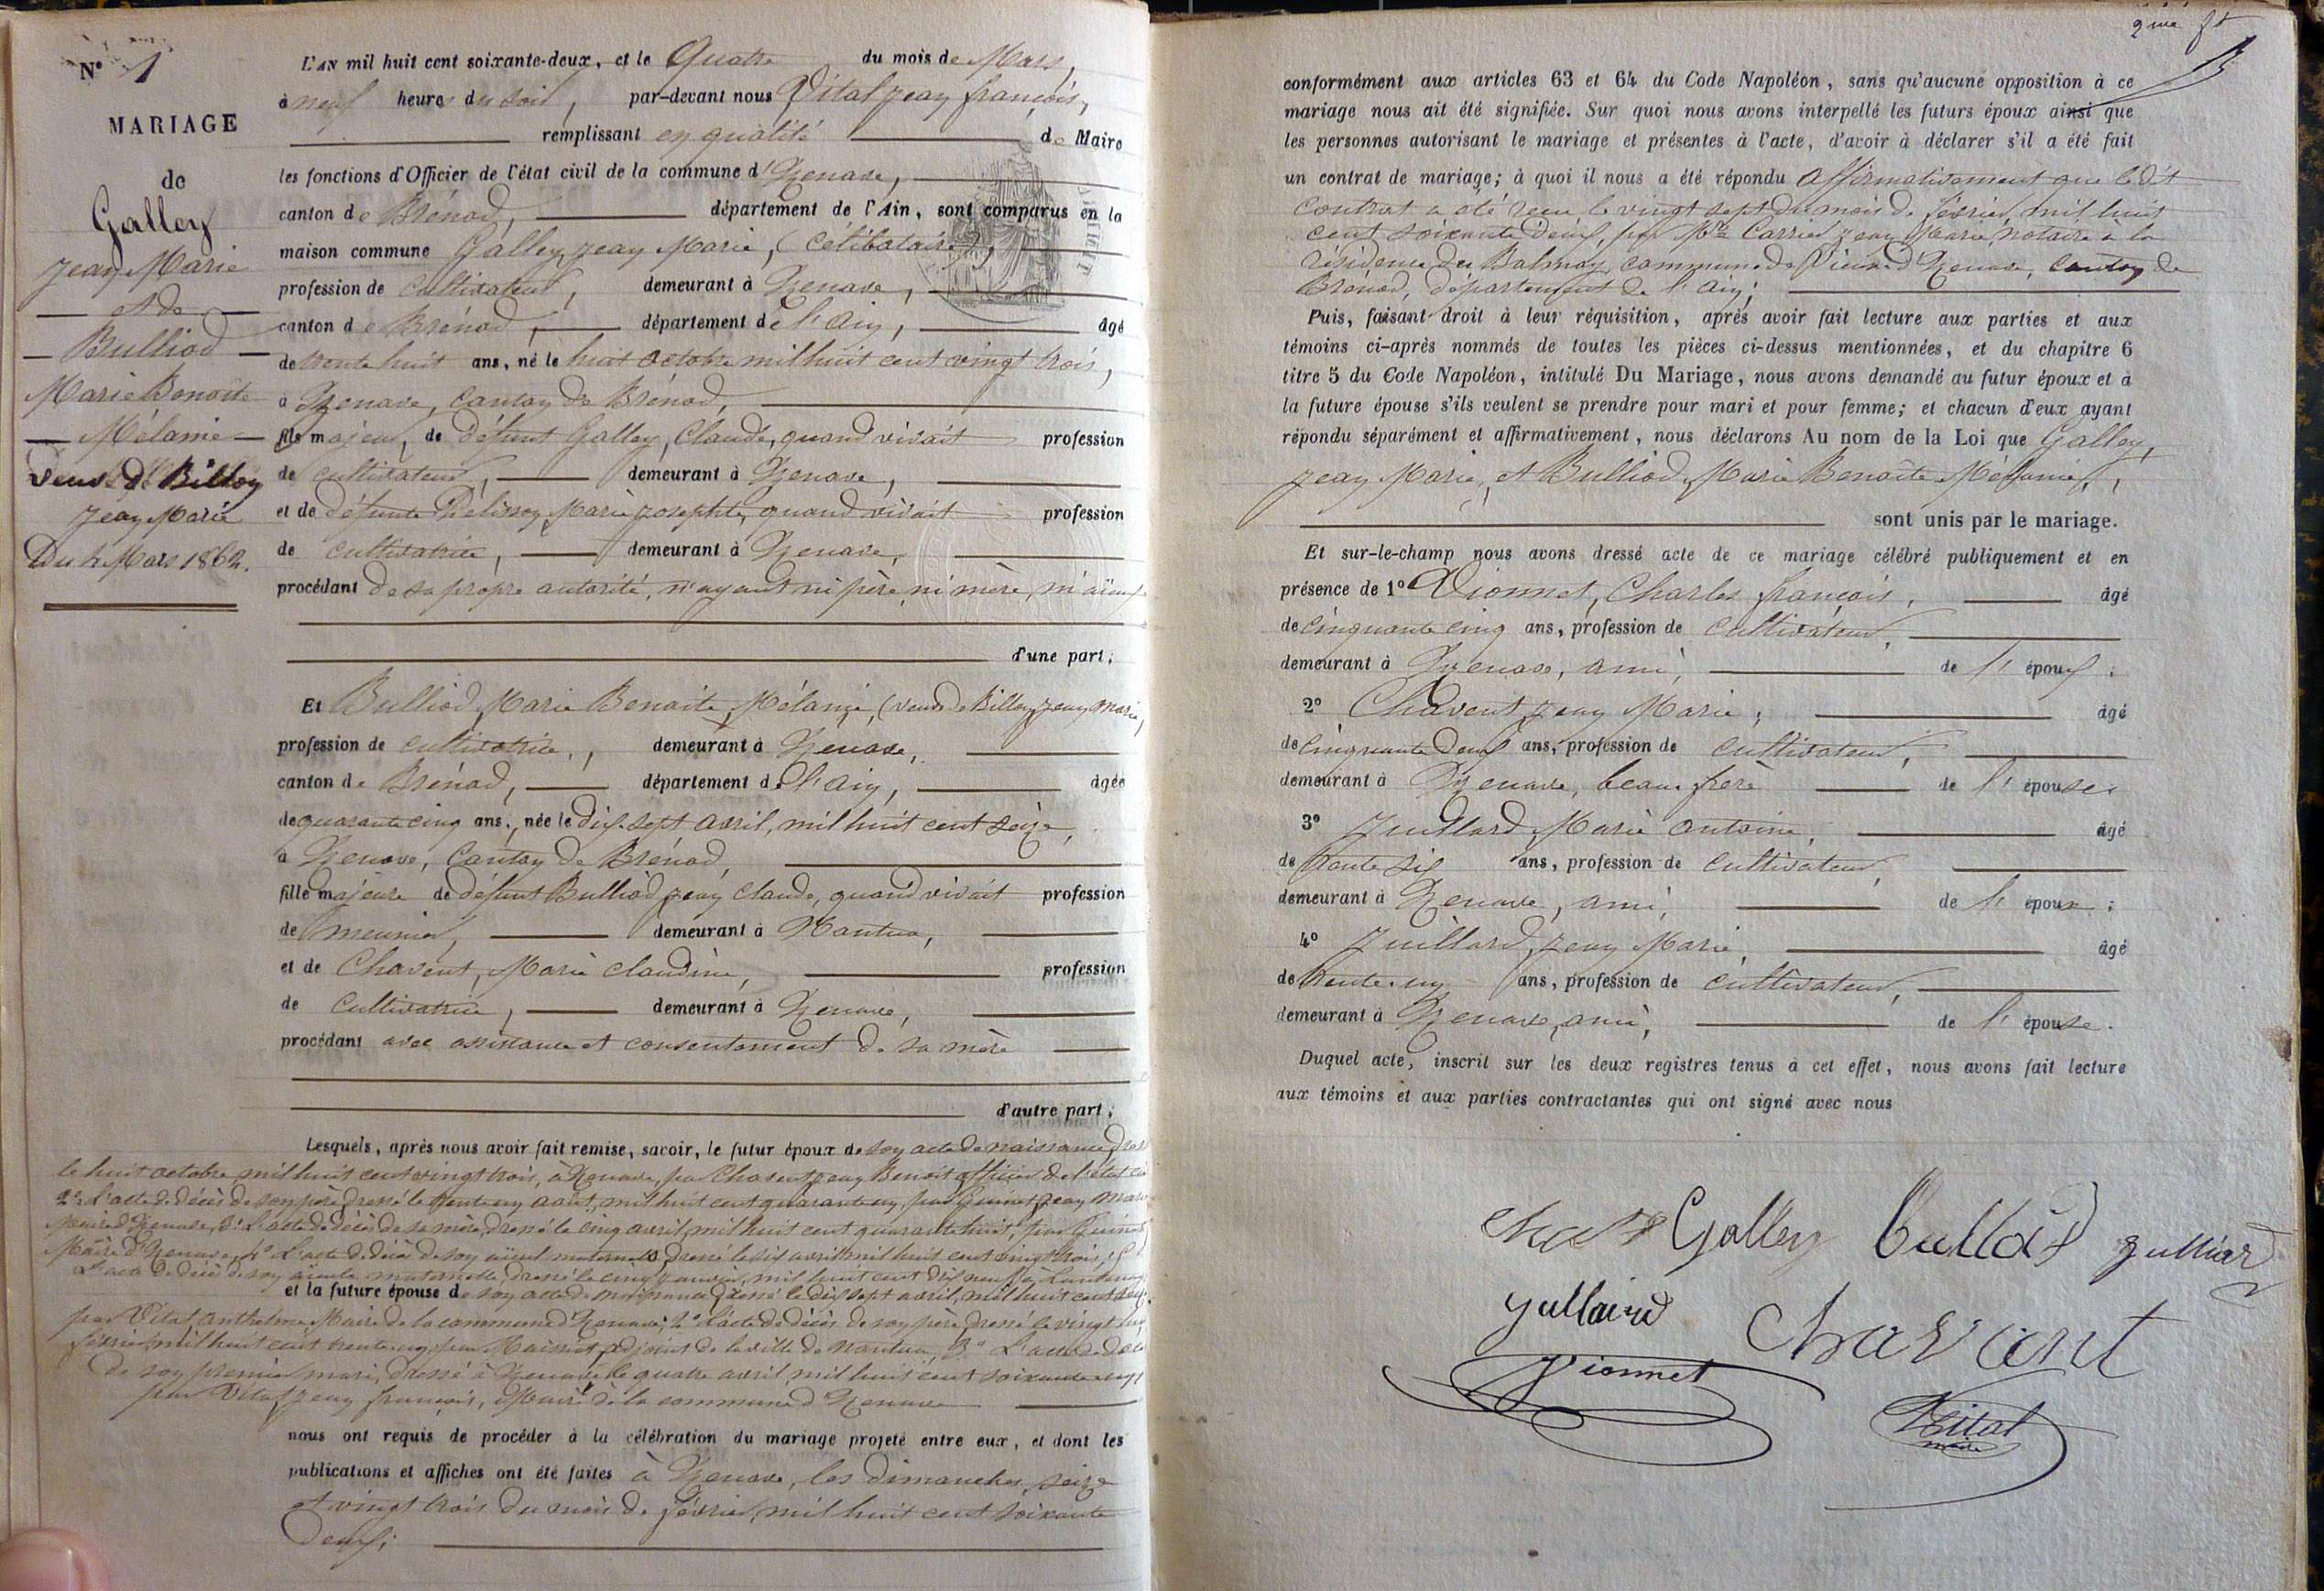 N° 1
MARIAGE
de
Galley
Jean Marie
et de
Bulliod
Marie Benoite
Mélanie
veuve de Billoy
Jean Marie
Du 4 Mars 1862.
L'AN mil huit cent soixante-deux, et le Quatre du mois de Mars,
à neuf heures du soir, par-devant nous Vital Jean françois,
remplissant en qualité de Maire
les fonctions d'Officier de l'état civil de la commune d'Izenave,
canton de Brénod, département de l'Ain, sont comparus en la
maison commune Galley, Jean Marie, (célibataire),
profession de cultivateur, demeurant à Izenave,
canton de Brénod, département de l'Ain, âgé
de trente huit ans, né le huit octobre mil huit cent vingt trois,
à Izenave, canton de Brénod,
fils majeur, de défunt Galley, Claude, quand vivait profession
de cultivateur, demeurant à Izenave,
et de défunte Marie Josephte, quand vivait profession
de cultivatrice, demeurant à Izenave,
procédant de sa propre autorité, n'ayant ni père, ni mère, ni aïeux
d'une part;
Et Bulliod, Marie Benoite Mélanie, (veuve de Billoy, Jean Marie)
profession de cultivatrice, demeurant à Izenave,
canton de Brénod, département de l'Ain, âgée
de quarante cinq ans, née le dix-sept avril, mil huit cent seize,
à Izenave, canton de Brénod,
fille majeure de défunt Bulliod, Jean Claude, quand vivait profession
de meunier, demeurant à Nantua,
et de Chavent, Marie Claudine, profession
de cultivatrice, demeurant à Izenave,
procédant avec assistance et consentement de sa mère
d'autre part;
Lesquels, après nous avoir fait remise, savoir, le futur époux de son acte de naissance dressé
le huit octobre mil huit cent vingt trois, à Izenave, par Chavent Jean Benoit officier de l'état civil
2° L'acte de décès de son père, dressé le trente un août, mil huit cent quarante un, par Guinet Jean Marie
Maire d'Izenave, 3° L'acte de décès de sa mère, dressé le cinq avril, mil huit cent quarante huit, par Guinet
Maire d'Izenave, 4° L'acte de décès de son aïeul maternel dressé le six avril mil huit cent vingt trois,
L'acte de décès de son aïeule maternelle, dressé le cinq janvier, mil huit cent dix neuf à Lantenay
et la future épouse de son acte de naissance dressé le dix sept avril, mil huit cent seize
par Vital Anthelme Maire de la commune d'Izenave; 2° L'acte de décès de son père, dressé le vingt
février, mil huit cent trente un, par adjoint de la ville de Nantua, 3° L'acte de décès
de son premier mari, dressé à Izenave le quatre avril mil huit cent soixante un,
par Vital, Jean françois, Maire de la commune d'Izenave
nous ont requis de procéder à la célébration du mariage projeté entre eux, et dont les
publications et affiches ont été faites à Izenave, les dimanches, seize
et vingt trois du mois de février, mil huit cent soixante
deux;
2me ft
conformément aux articles 63 et 64 du Code Napoléon, sans qu'aucune opposition à ce
mariage nous ait été signifiée. Sur quoi nous avons interpellé les futurs époux ainsi que
les personnes autorisant le mariage et présentes à l'acte, d'avoir à déclarer s'il a été fait
un contrat de mariage; à quoi il nous a été répondu affirmativement que ledit
contrat a été reçu, le vingt sept du mois de février, mil huit
cent soixante deux, par Mtre Carrier Jean Marie, notaire à la
résidence des Balmay, commune de Vieux d'Izenave, canton de
Brénod, département de l'Ain;
Puis, faisant droit à leur réquisition, après avoir fait lecture aux parties et aux
témoins ci-après nommés de toutes les pièces ci-dessus mentionnées, et du chapitre 6
titre 5 du Code Napoléon, intitulé Du Mariage, nous avons demandé au futur époux et à
la future épouse s'ils veulent se prendre pour mari et pour femme; et chacun d'eux ayant
répondu séparément et affirmativement, nous déclarons Au nom de la Loi que Galley,
Jean Marie, et Bulliod, Marie Benoite Mélanie,
sont unis par le mariage.
Et sur-le-champ nous avons dressé acte de ce mariage célébré publiquement et en
présence de 1° Vionnet, Charles françois, âgé
de cinquante cinq ans, profession de cultivateur,
demeurant à Izenave, ami, de l'époux;
2° Chavent, Jean Marie, âgé
de cinquante deux ans, profession de cultivateur,
demeurant à Izenave, beau frère de l'épouse.
3° Juillard, Marie antoine, âgé
de trente six ans, profession de cultivateur,
demeurant à Izenave, ami, de l'époux;
4° Juillard, Jean Marie, âgé
de trente un ans, profession de cultivateur,
demeurant à Izenave, ami, de l'épouse.
Duquel acte, inscrit sur les deux registres tenus à cet effet, nous avons fait lecture
aux témoins et aux parties contractantes qui ont signé avec nous
Galley
Vionnet
Chavant
Vital
maire